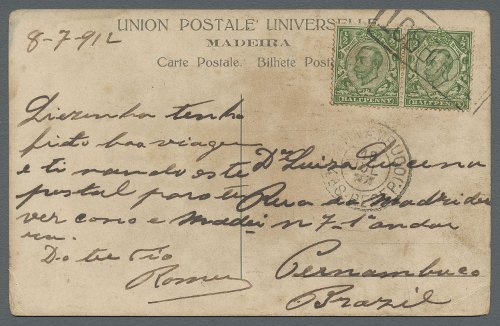 8-7-912
UNION POSTALE UNIVERSELLE
MADEIRA
Carte Postale. Bilhete Post
HALFPENNY
HALFPENNY
tenho
feito boa viagem
e ti mando este
postal para te
ver como e Madei
ra.
Do teu tio
Romeu
Luiza
Rua da Madre de
n 7-1º andar
Pernambuco
Brazil